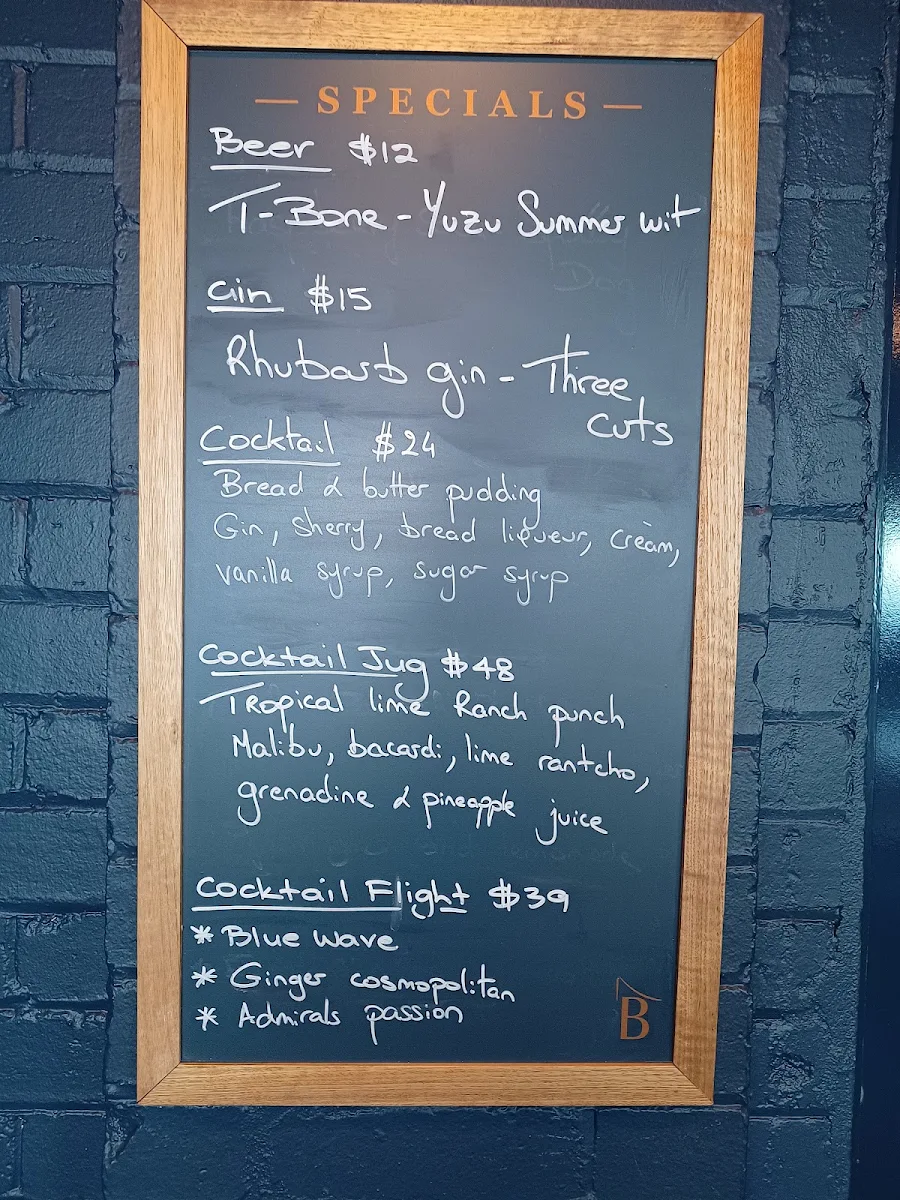 — SPECIALS —
Beer $12
T-Bone - Yuzu Summer wit
Gin $15
Rhubarb gin - Three
cuts
Cocktail $24
Bread & butter pudding
Gin, Sherry, bread liqueur, cream,
vanilla syrup, sugar syrup
Cocktail Jug $48
Tropical lime Ranch punch
Malibu, bacardi, lime rantcho,
grenadine & pineapple juice
Cocktail Flight $39
* Blue wave
* Ginger cosmopolitan
* Admirals passion
B